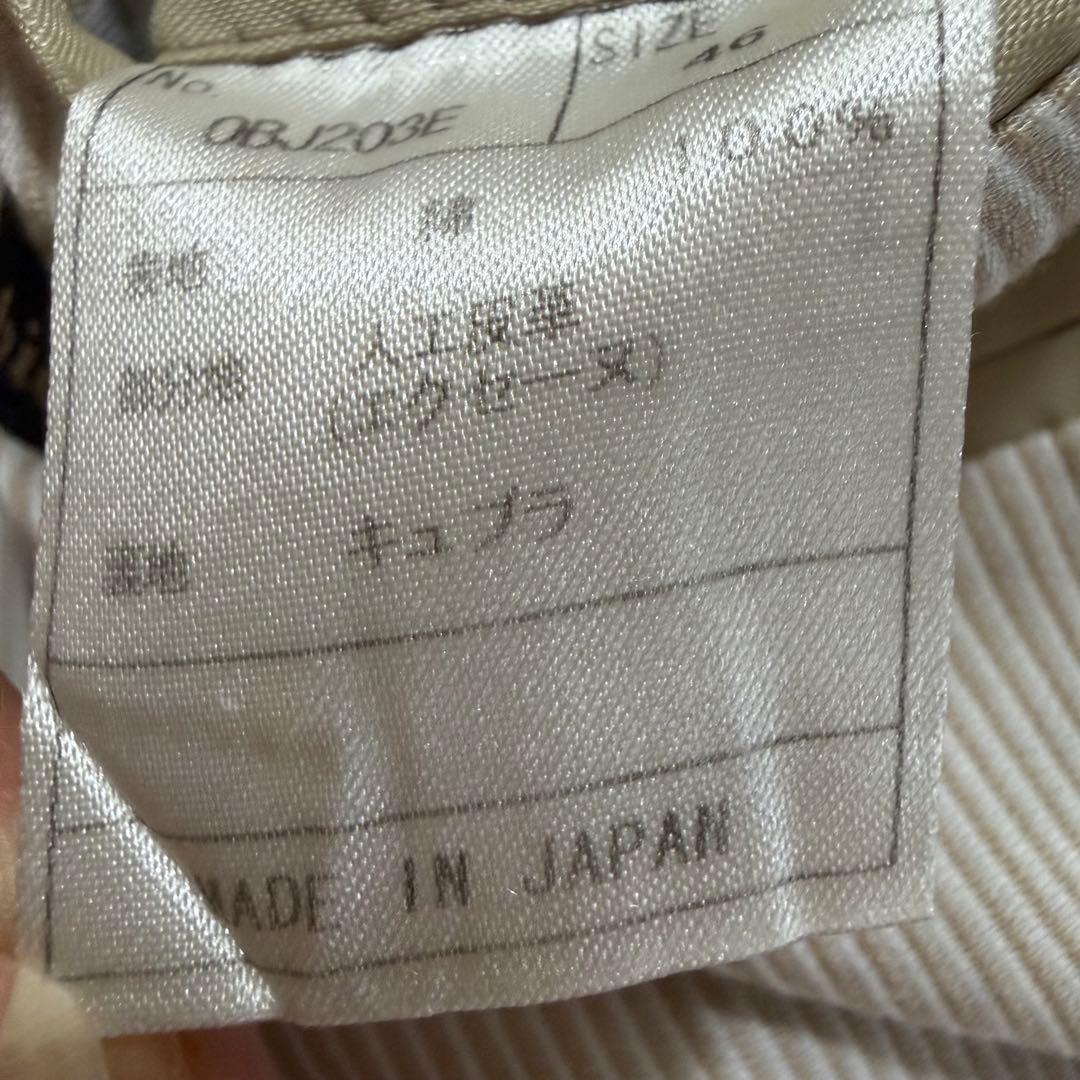 No. SIZE
OBJ203E 46
表地 綿 100%
部分使 人工皮革
(エクセーヌ)
裏地 キュプラ
MADE IN JAPAN